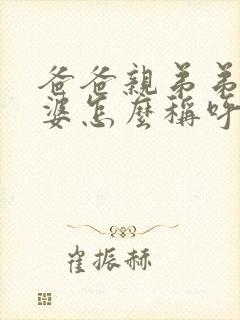 爸爸親弟弟
婆怎麼稱呼
崔振赫